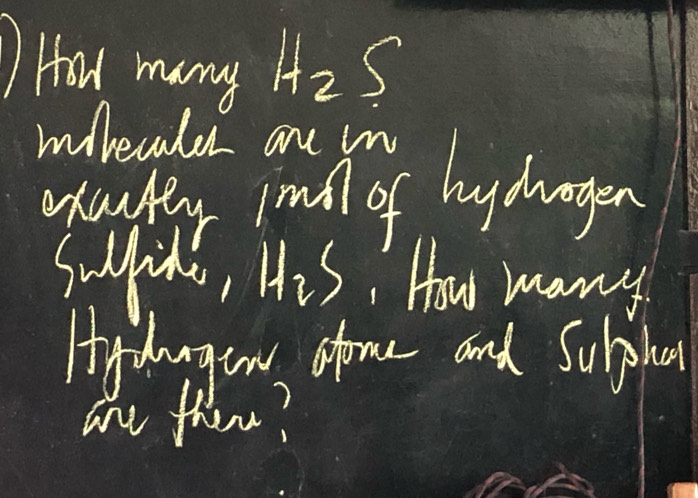 1) How many H₂S
molecules are in
exactly 1mol of hydrogen
Sulfide, H₂S. How many
Hydrogen atoms and Sulphur
are there?